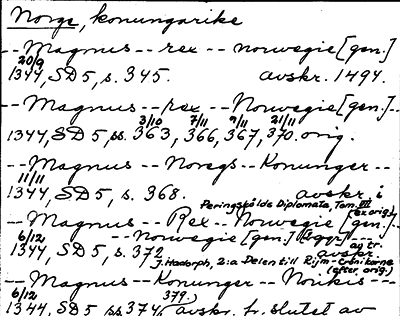 Norge, konungarike
-- Magnus -- rex -- norwegie [gen.]
20/9
1344, SD 5, s. 345. avskr. 1494.
-- Magnus -- rex -- Norwegie [gen.] --
3/10 7/11 9/11 21/11
1344, SD 5, ss. 363, 366, 367, 370. orig.
-- Magnus -- Noregs -- Konunger --
11/11
1344, SD 5, s. 368. avskr. i
Peringskölds Diplomata, Tom. III
(ex orig.)
-- Magnus -- Rex -- Norwegie [gen.] --
6/12 -- Norwegie [gen.] av tr.
1344, SD 5, s. 372 avskr.
J. Hadorph, 2:a Delen till Rijm-Crönikorne
(efter orig.)
-- Magnus -- Konunger -- Norikis --
6/12 379.)
1344, SD 5 ss. 374, avskr. fr. slutet av